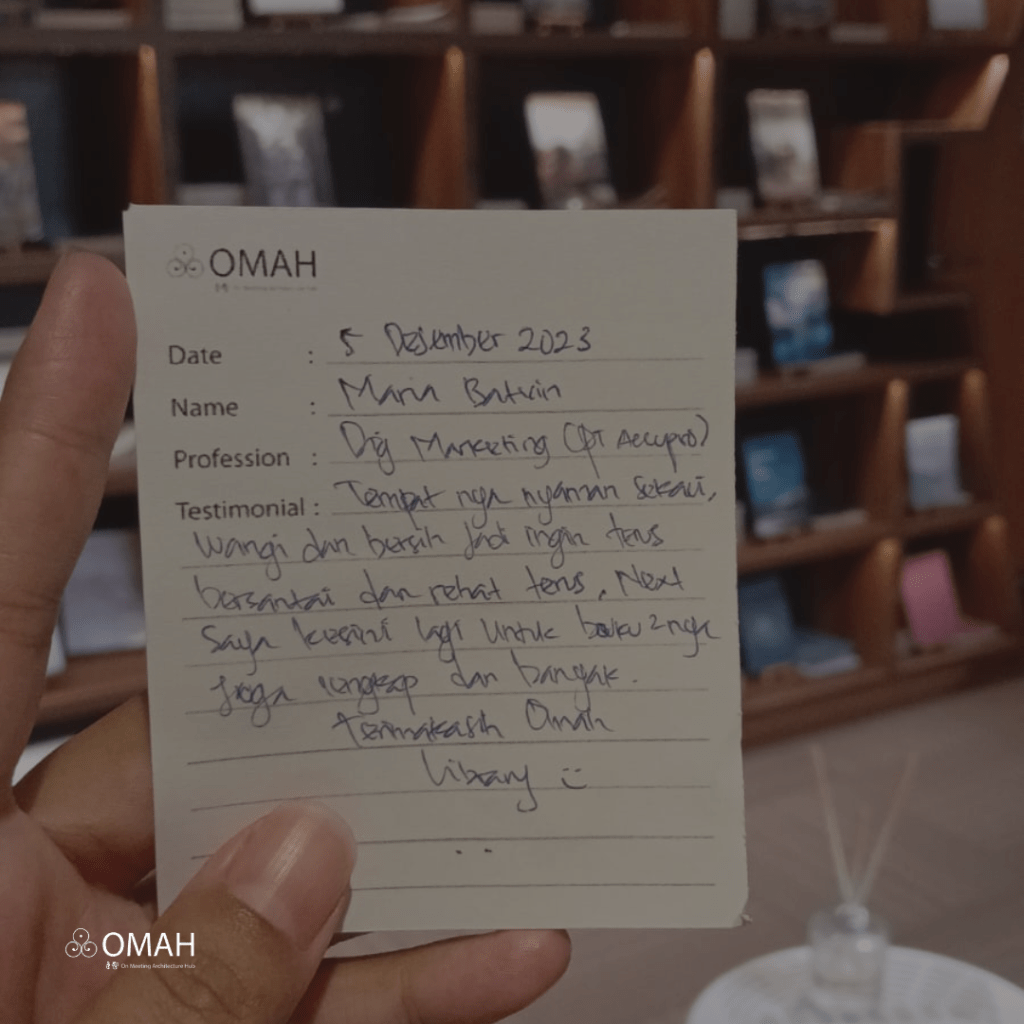 OMAH
Date : 5 Desember 2023
Name : Maria
Profession : Dig Marketing (PT Accupro)
Testimonial : Tempat nya nyaman sekali,
wangi dan bersih jadi ingin terus
bersantai dan rehat terus. Next
saya kesini lagi untuk buku2nya
juga lengkap dan banyak.
Terimakasih Omah
Library
OMAH
On Meeting Architecture Hub